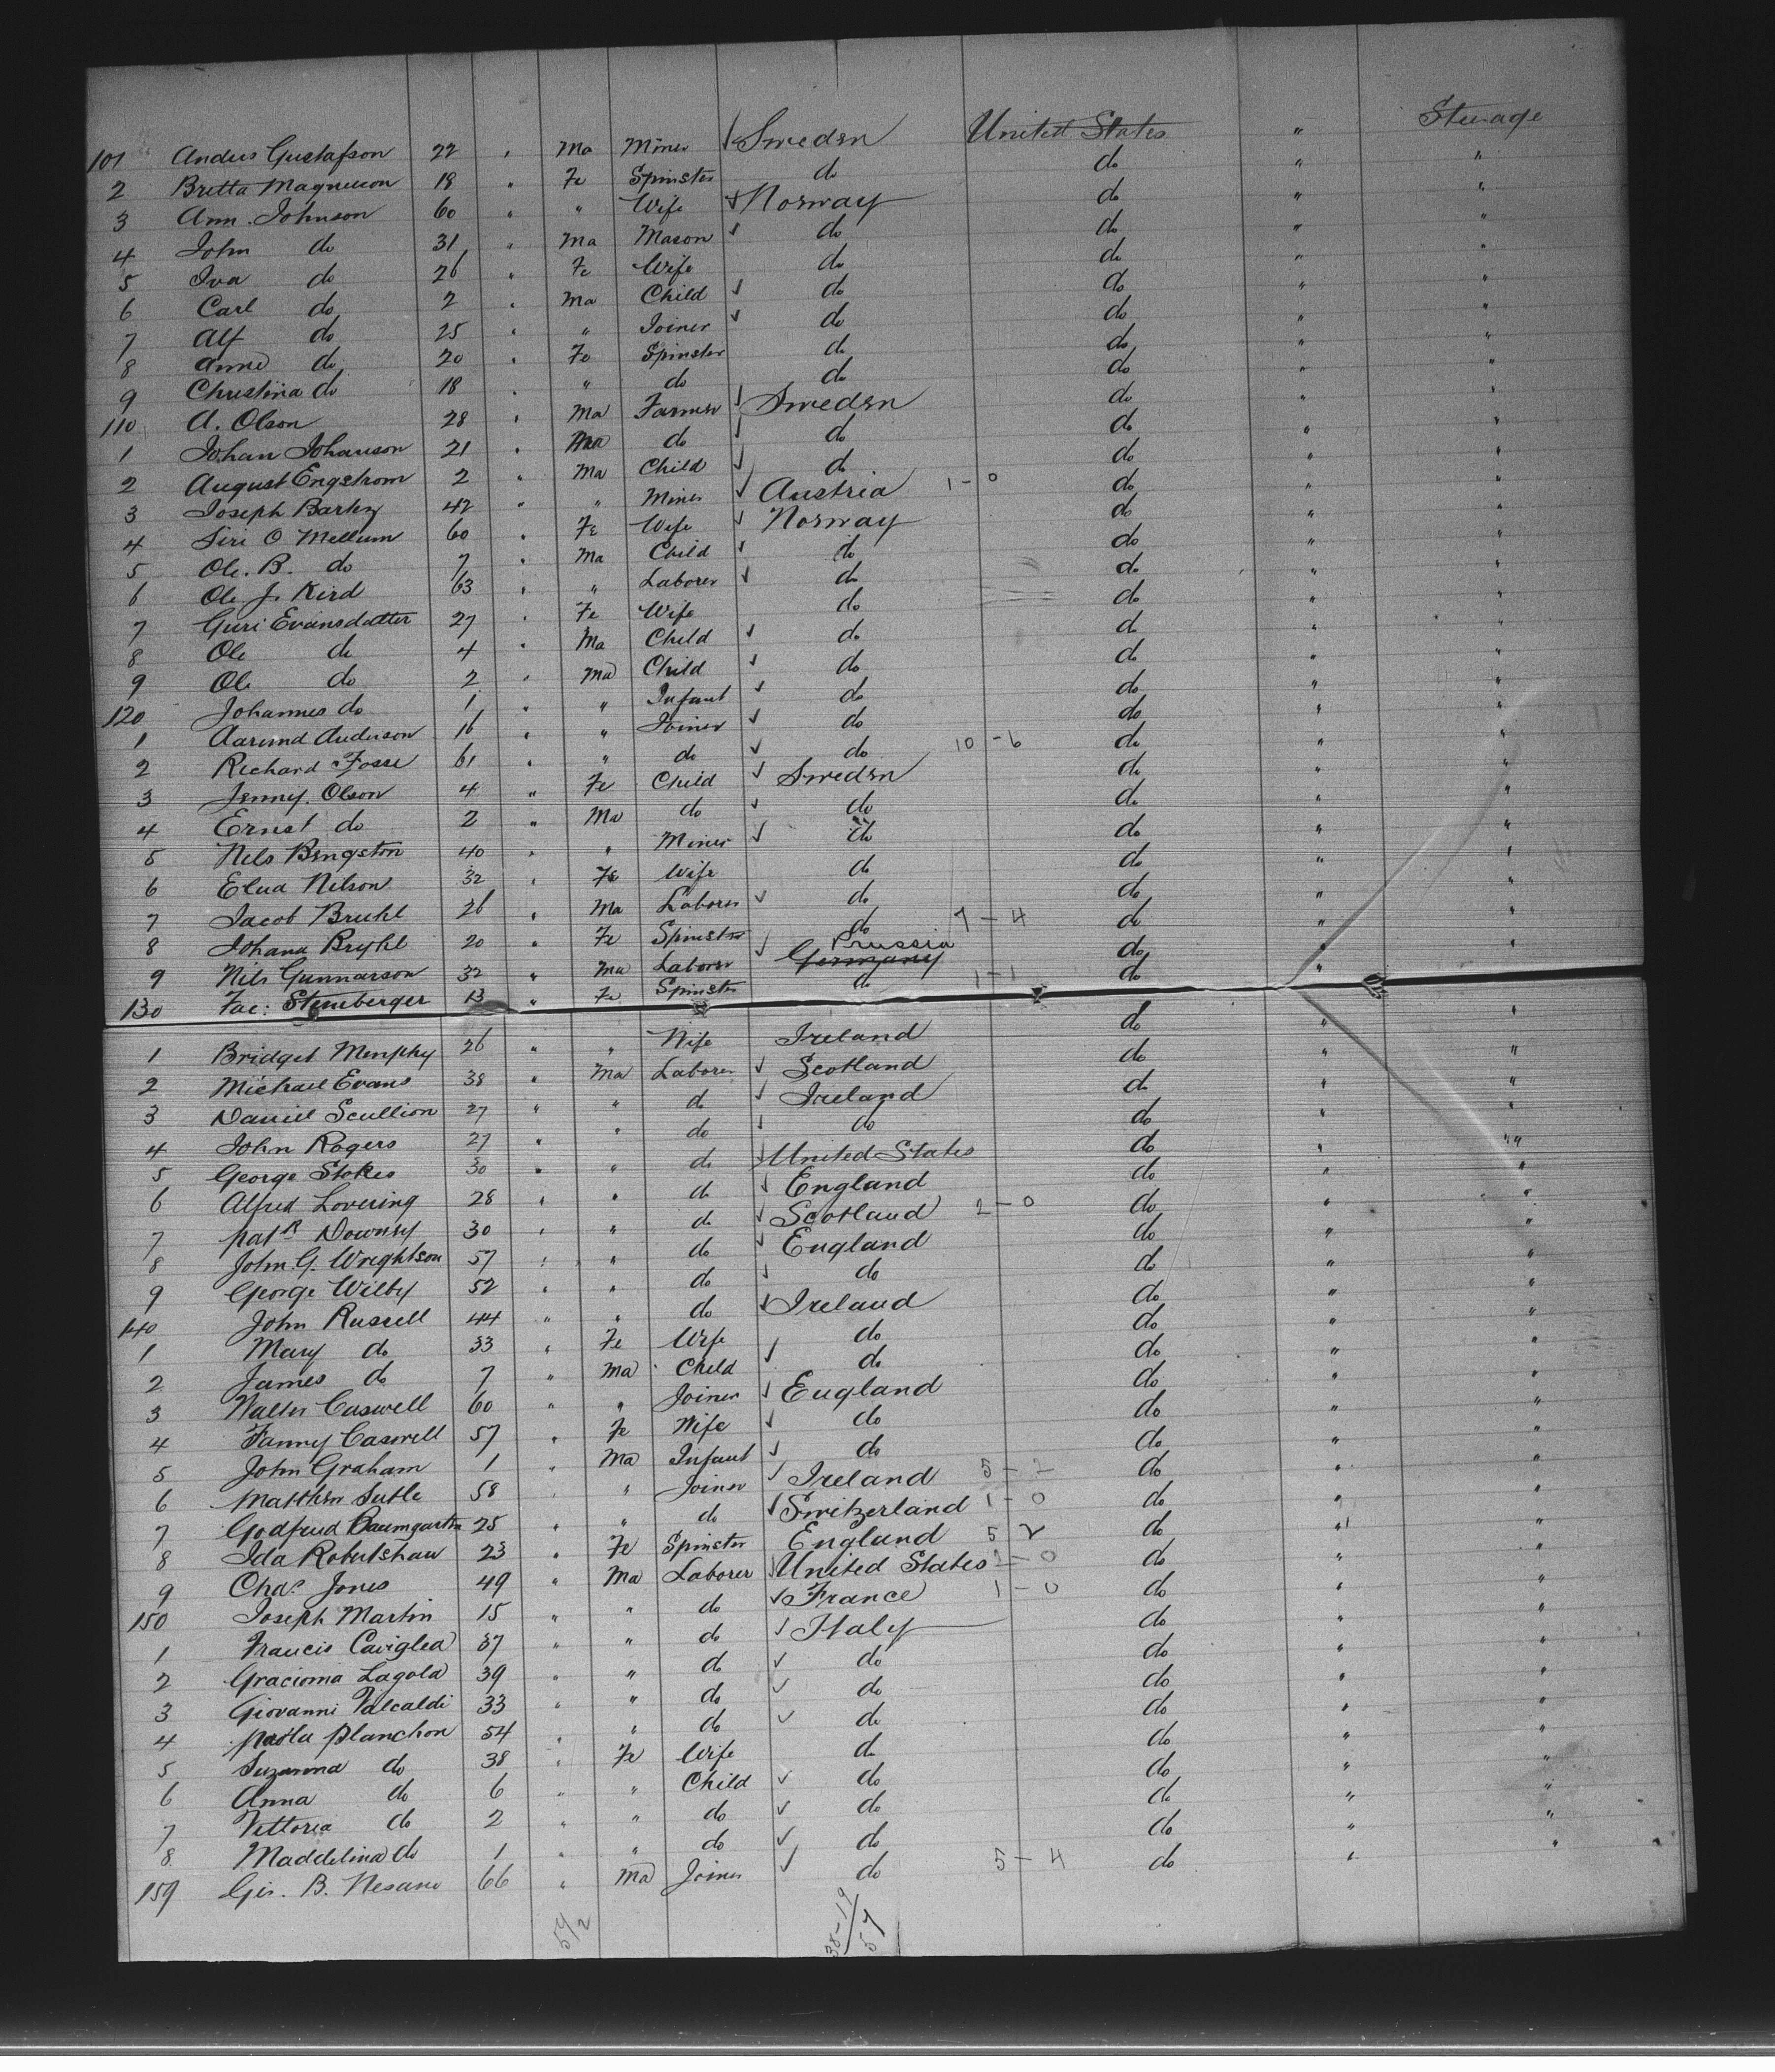 101 Andus Gustafson 22 " Ma Miner √ Sweden United States " Steerage
2 Britta Magnuson 18 " Fe Spinster do do " "
3 Ann. Johnson 60 " " Wife √ Norway do " "
4 John do 31 " Ma Mason √ do do " "
5 Iva do 26 " Fe Wife do do " "
6 Carl do 2 " Ma Child √ do do " "
7 Alf do 25 " " Joiner √ do do " "
8 Anne do 20 " Fe Spinster do do " "
9 Christina do 18 " " do do do " "
110 A. Olson 28 " Ma Farmer √ Sweden do " "
1 Johan Johanson 21 " Ma do √ do do " "
2 August Engstrom 2 " Ma Child √ do do " "
3 Joseph 42 " " Miner √ Austria 1-0 do " "
4 Siri O Mellum 60 " Fe Wife √ Norway do " "
5 Ole. B. do 7 " Ma Child √ do do " "
6 Ole J. Kird 63 " " Laborer √ do do " "
7 Guri Evansdatter 27 " Fe Wife do do " "
8 Ole do 4 " Ma Child √ do do " "
9 Ole do 2 " Ma Child √ do do " "
120 Johannes do 1 " " Infant √ do do " "
1 Aarund Anderson 16 " " Joiner √ do do " "
2 Richard Fosse 61 " " do √ do 10-6 do " "
3 Jenny. Olson 4 " Fe Child √ Sweden do " "
4 Ernst do 2 " Ma do √ do do " "
5 Nils Bengston 40 " " Miner √ do do " "
6 Nilson 32 " Fe Wife do do " "
7 Jacob Bruhl 26 " Ma Laborer √ do do " "
8 Johana Bryhl 20 " Fe Spinster do 7-4 do " "
9 Nils Gunnarson 32 " Ma Laborer √ Germany Prussia do " "
130 Fac: Steinberger 13 " Fe Spinster do 1-1 do " "
1 Bridget Menphy 26 " " Wife Ireland do " "
2 Michael Evans 38 " Ma Laborer √ Scotland do " "
3 Daniel Scullion 27 " " do √ Ireland do " "
4 John Rogers 27 " " do √ do do " "
5 George Stokes 30 " " do √ United States do " "
6 Alfred Lovering 28 " " do √ England do " "
7 Patk Downey 30 " " do √ Scotland 2-0 do " "
8 John. G. Wrightson 57 " " do √ England do " "
9 George Wilby 52 " " do √ do do " "
140 John Russell 44 " " do √ Ireland do " "
1 Mary do 33 " Fe Wife do do " "
2 James do 7 " Ma Child √ do do " "
3 Walter Caswell 60 " " Joiner √ England do " "
4 Fanny Caswell 57 " Fe Wife √ do do " "
5 John Graham 1 " Ma Infant √ do do " "
6 Matthew Sutle 58 " " Joiner √ Ireland 5-2 do " "
7 Godfried Baumgarten 25 " " do √ Switzerland 1-0 do " "
8 Ida Robertshaw 23 " Fe Spinster England 5 2 do " "
9 Chas Jones 49 " Ma Laborer √ United States do " "
150 Joseph Martin 15 " " do √ France 1-0 do " "
1 Francis Caviglea 37 " " do √ Italy do " "
2 Gracioma Lagola 39 " " do √ do do " "
3 Giovanni Valcaldi 33 " " do √ do do " "
4 Planchon 54 " " do √ do do " "
5 Suzanna do 38 " Fe Wife do do " "
6 Anna do 6 " " Child √ do do " "
7 Vittoria do 2 " " do √ do do " "
8 Maddelina do 1 " " do √ do do " "
159 Gio. B. Nesano 66 " Ma Joiner √ do 5-4 do " "
59/2 38-19/57